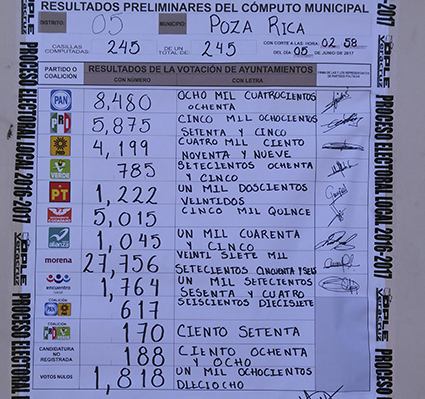 RESULTADOS PRELIMINARES DEL CÓMPUTO MUNICIPAL
DISTRITO: 05 MUNICIPIO: POZA RICA
CASILLAS COMPUTADAS: 245 DE UN TOTAL DE: 245 CON CORTE A LAS HORA 02 58
DEL DÍA 05 DE JUNIO DE 2017
PARTIDO O COALICIÓN RESULTADOS DE LA VOTACIÓN DE AYUNTAMIENTOS
CON NÚMERO CON LETRA
PAN 8,480 OCHO MIL CUATROCIENTOS
OCHENTA
PRI 5,875 CINCO MIL OCHOCIENTOS
SETENTA Y CINCO
PRD 4,199 CUATRO MIL CIENTO
NOVENTA Y NUEVE
VERDE 785 SETECIENTOS OCHENTA
Y CINCO
PT 1,222 UN MIL DOSCIENTOS
VEINTIDOS
MOVIMIENTO CIUDADANO 5,015 CINCO MIL QUINCE
alianza 1,045 UN MIL CUARENTA
Y CINCO
morena 27,756 VEINTI SIETE MIL
SETECIENTOS CINCUENTA Y SEIS
encuentro social 1,764 UN MIL SETECIENTOS
SESENTA Y CUATRO
COALICIÓN PAN PRD 617 SEISCIENTOS DIECISIETE
COALICIÓN PRI VERDE 170 CIENTO SETENTA
CANDIDATURA NO REGISTRADA 188 CIENTO OCHENTA
Y OCHO
VOTOS NULOS 1,818 UN MIL OCHOCIENTOS
DIECIOCHO
OPLE Veracruz
PROCESO ELECTORAL LOCAL 2016-2017